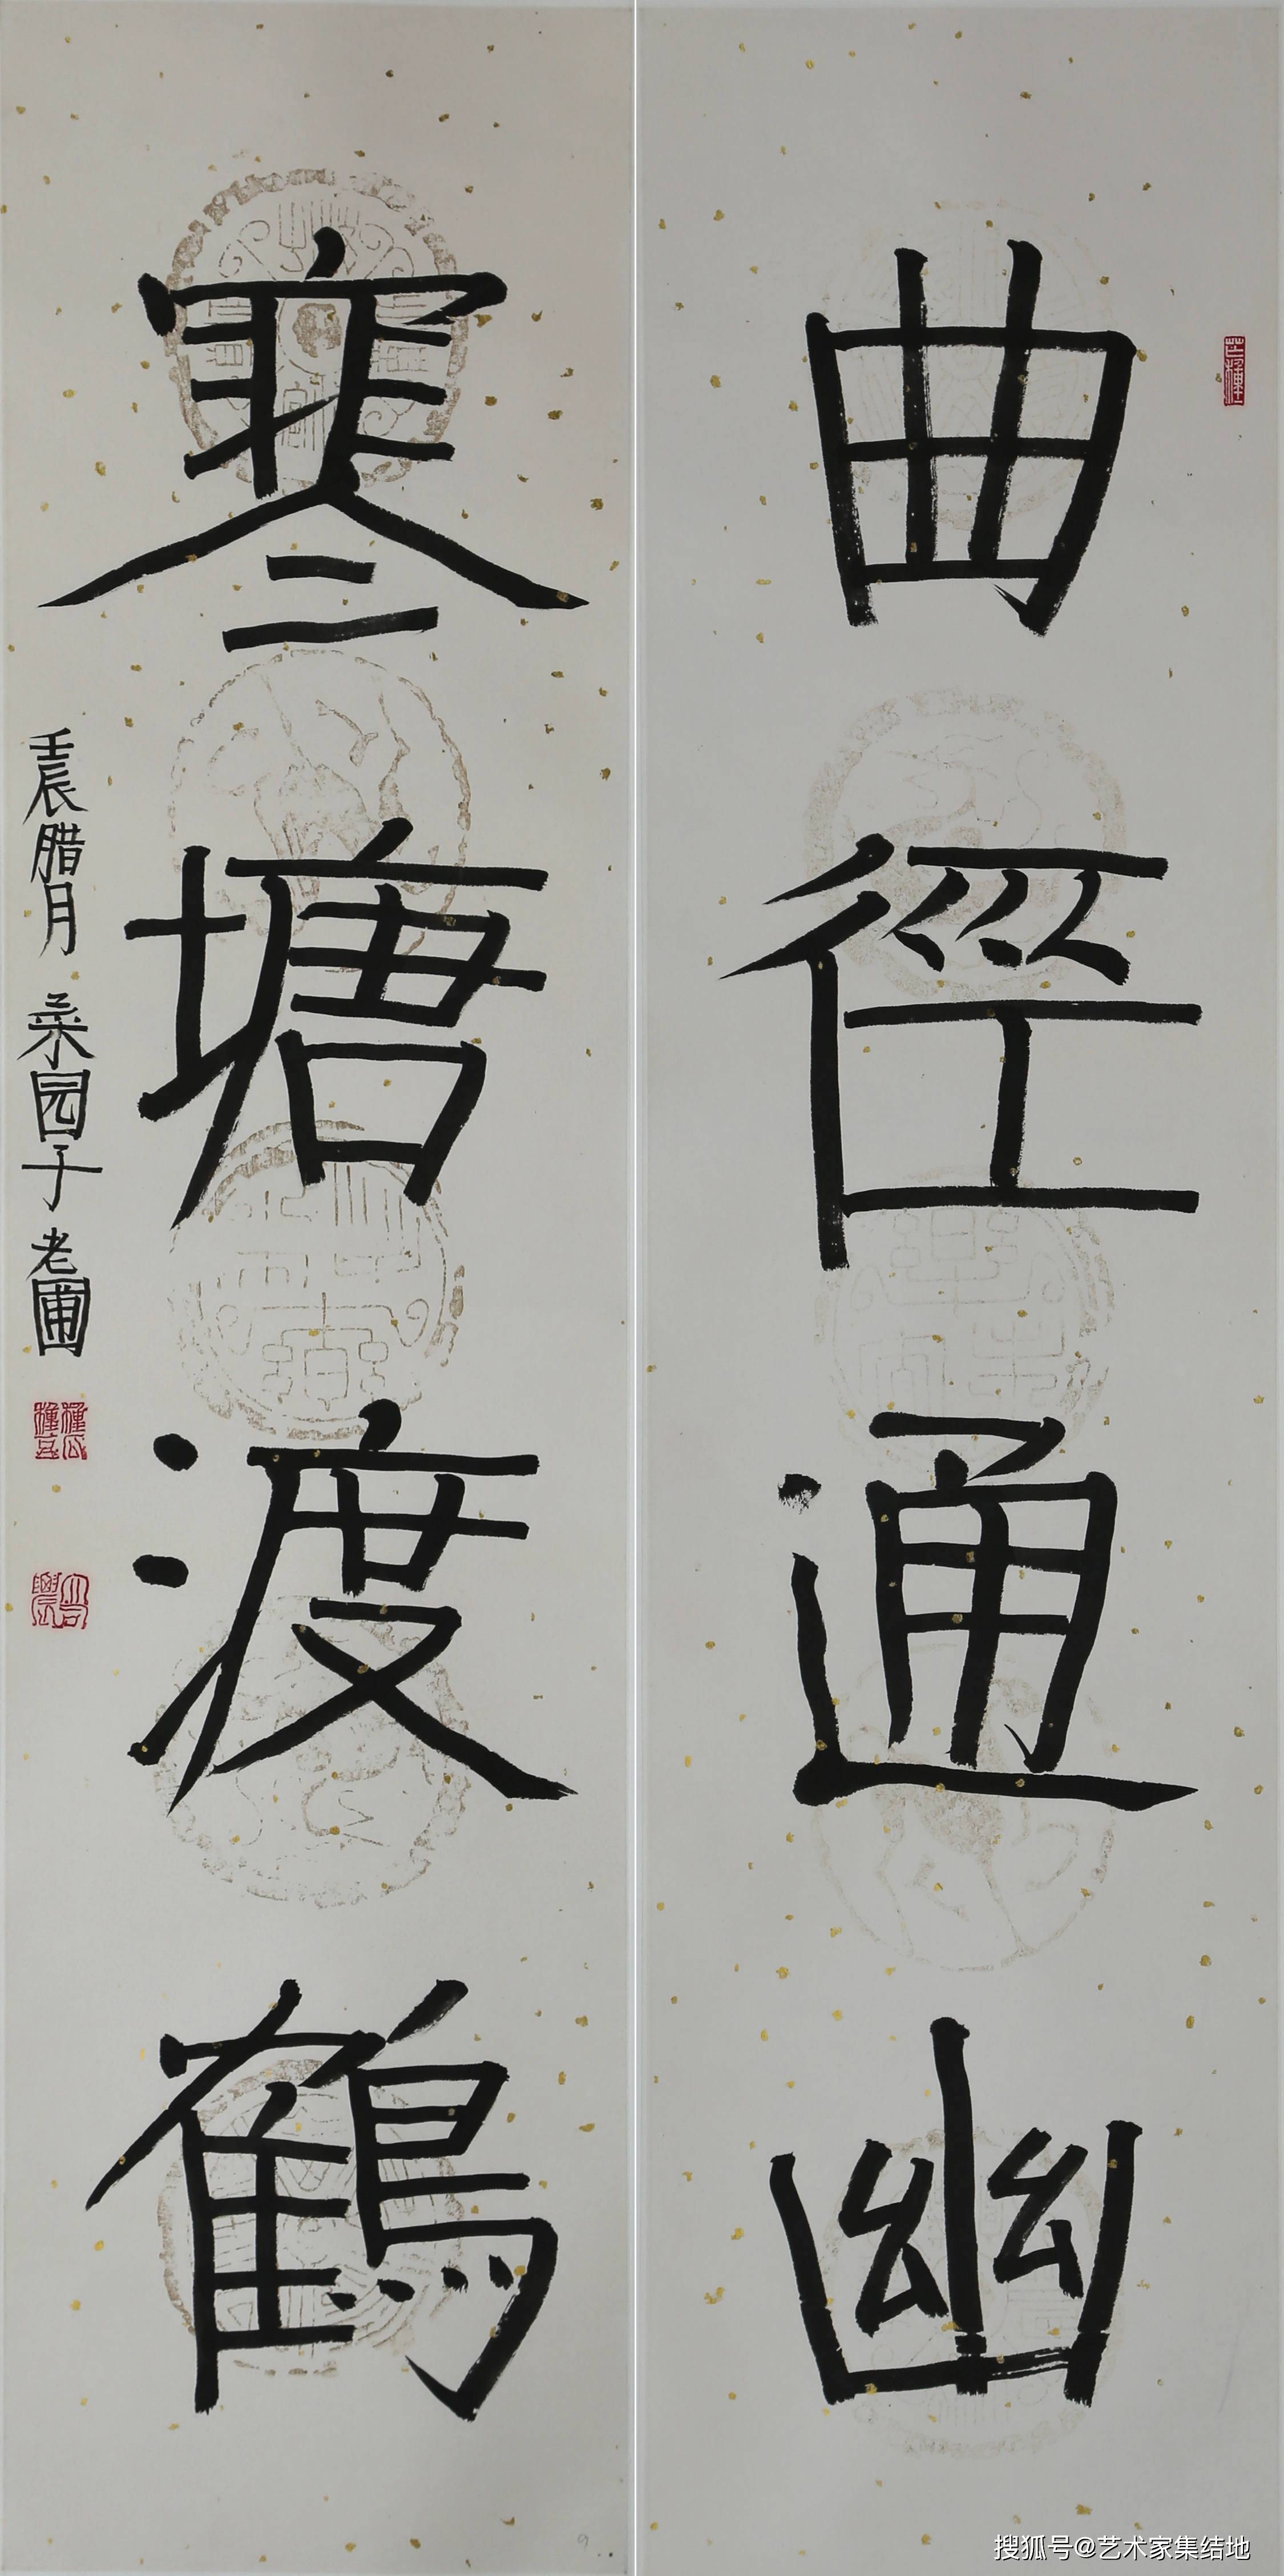 曲径通幽
寒塘渡鶴
壬辰腊月 采园子老圃
搜狐号@艺术家集结地